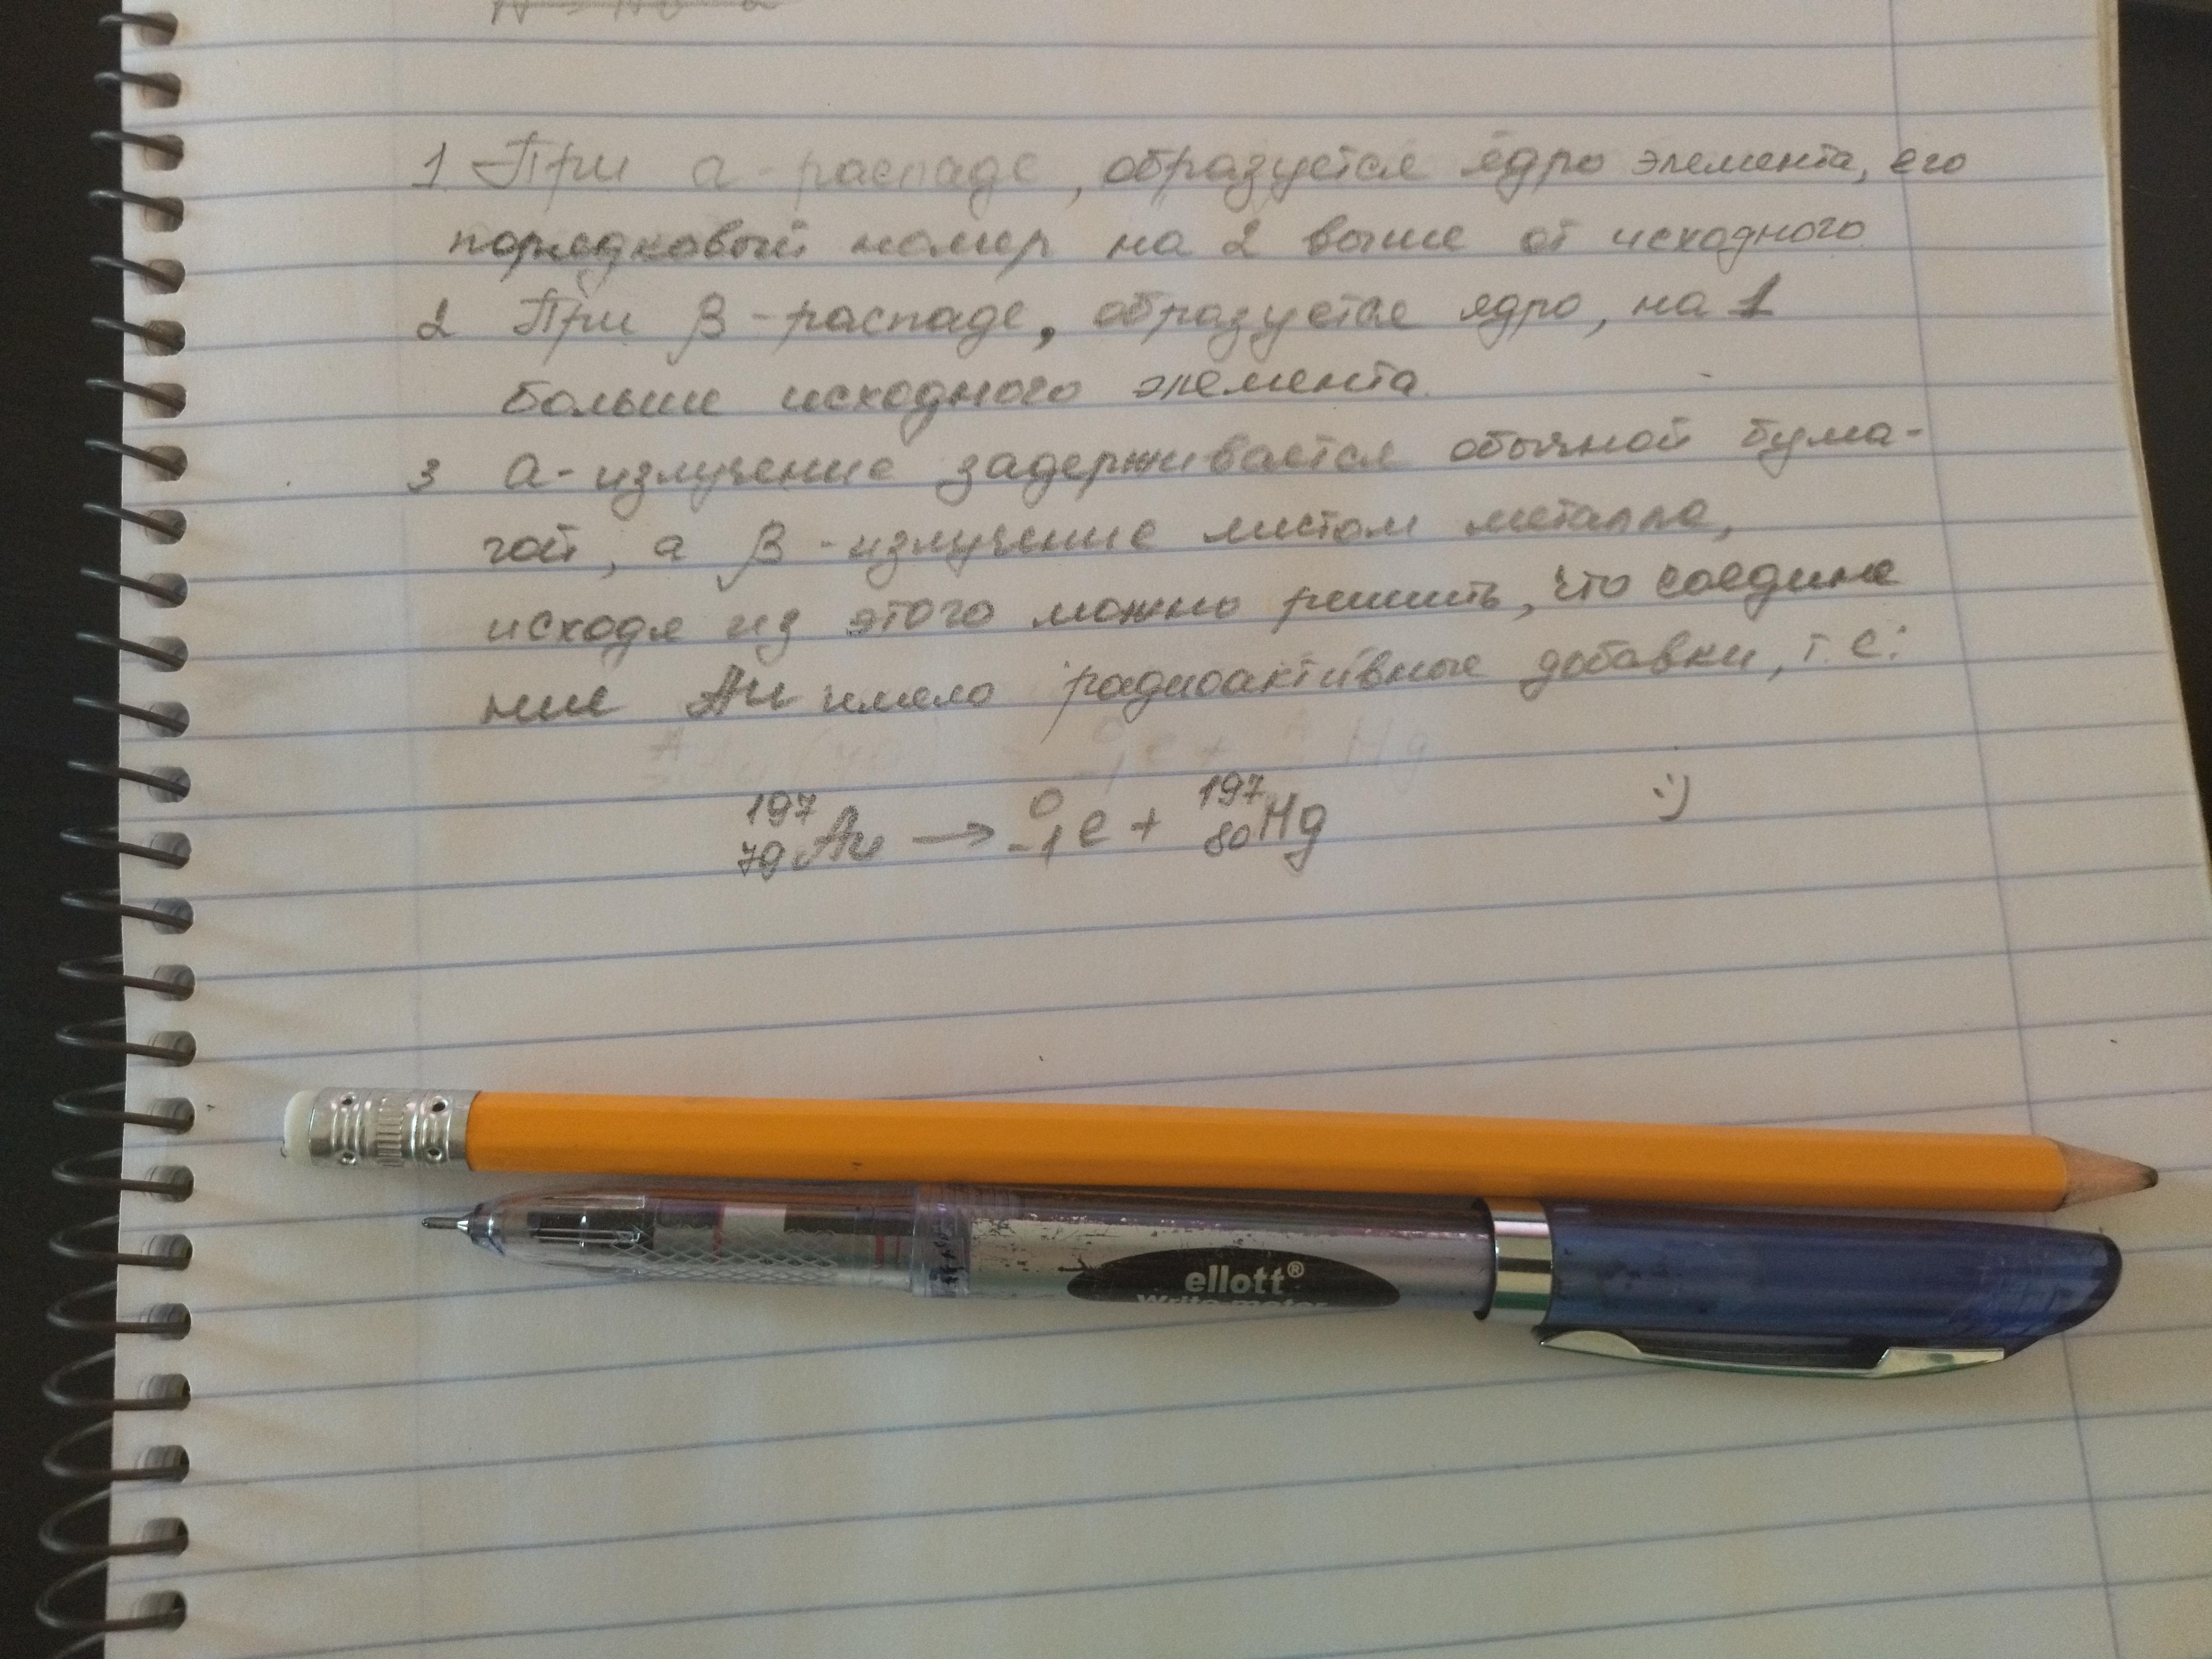 1. При α-распаде, образуется ядро элемента, его
порядковый номер на 2 выше от исходного
2 При β-распаде, образуется ядро, на 1
больше исходного элемента.
3 α-излучение задерживается обычной бума-
гой, а β-излучение листом металла,
исходя из этого можно решить, что соедине
ние Au имело радиоактивные добавки, т.е:
197 0 197
79Au → -1e + 80Hg :)
ellott®